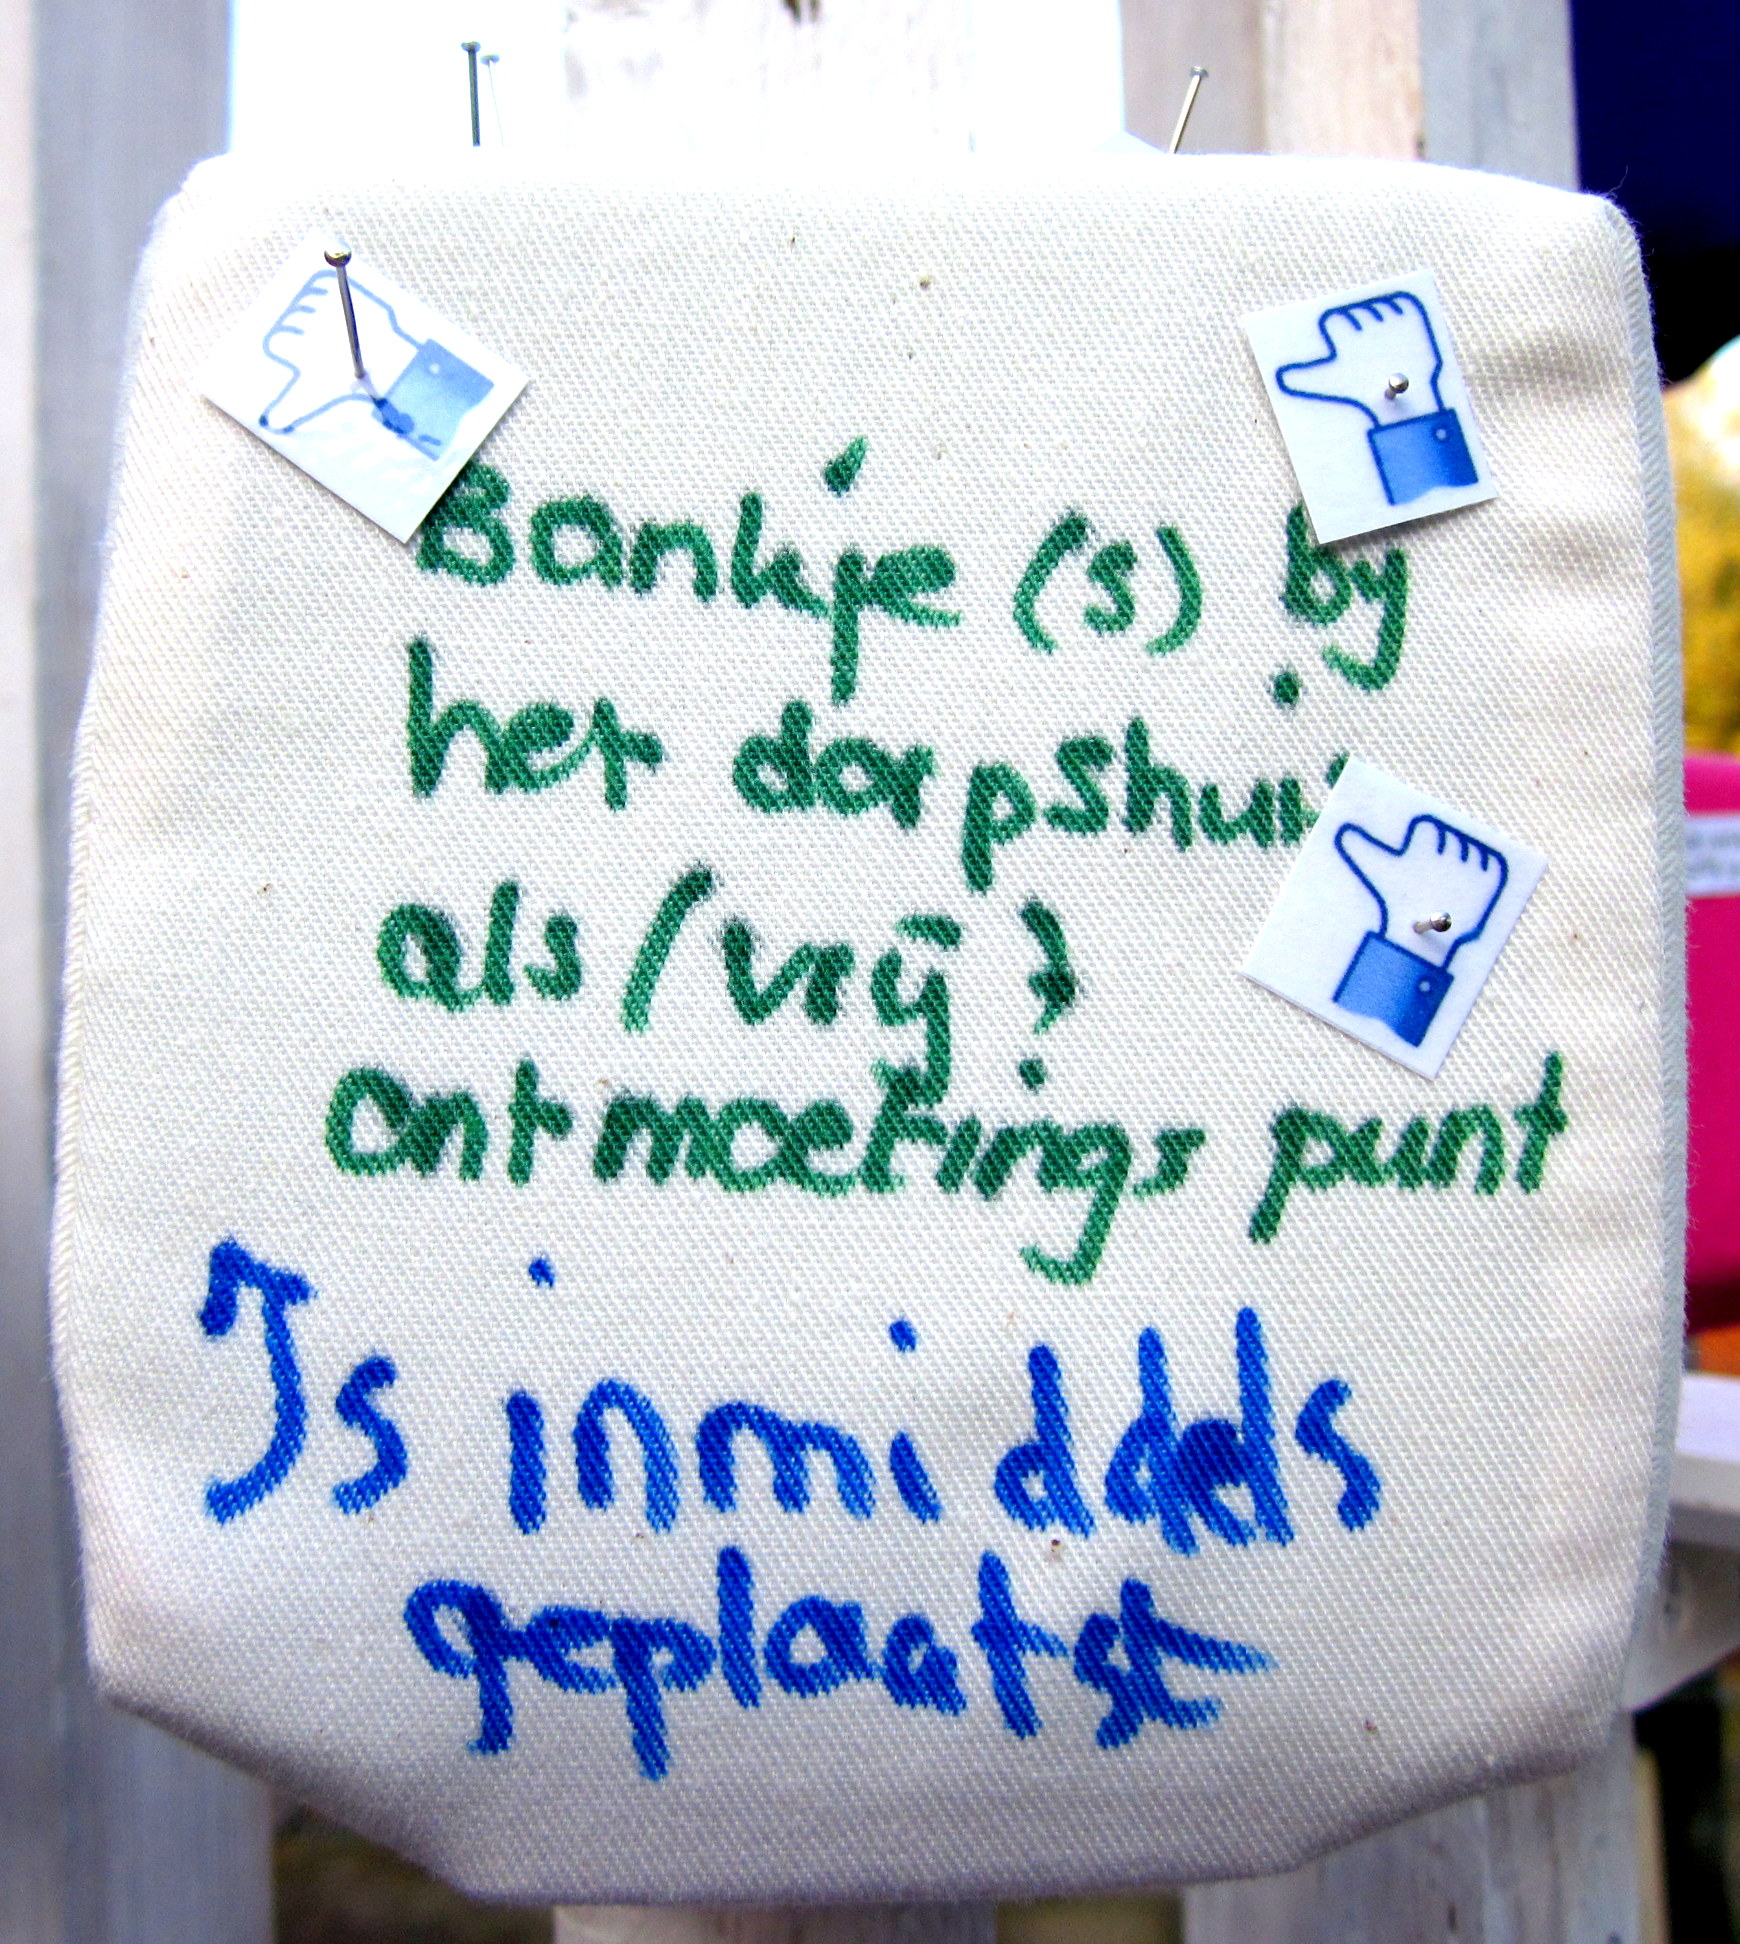 Bankje (s) by
het dorpshuis
als (vrij)
ontmoetings punt
Is inmiddels
geplaatst